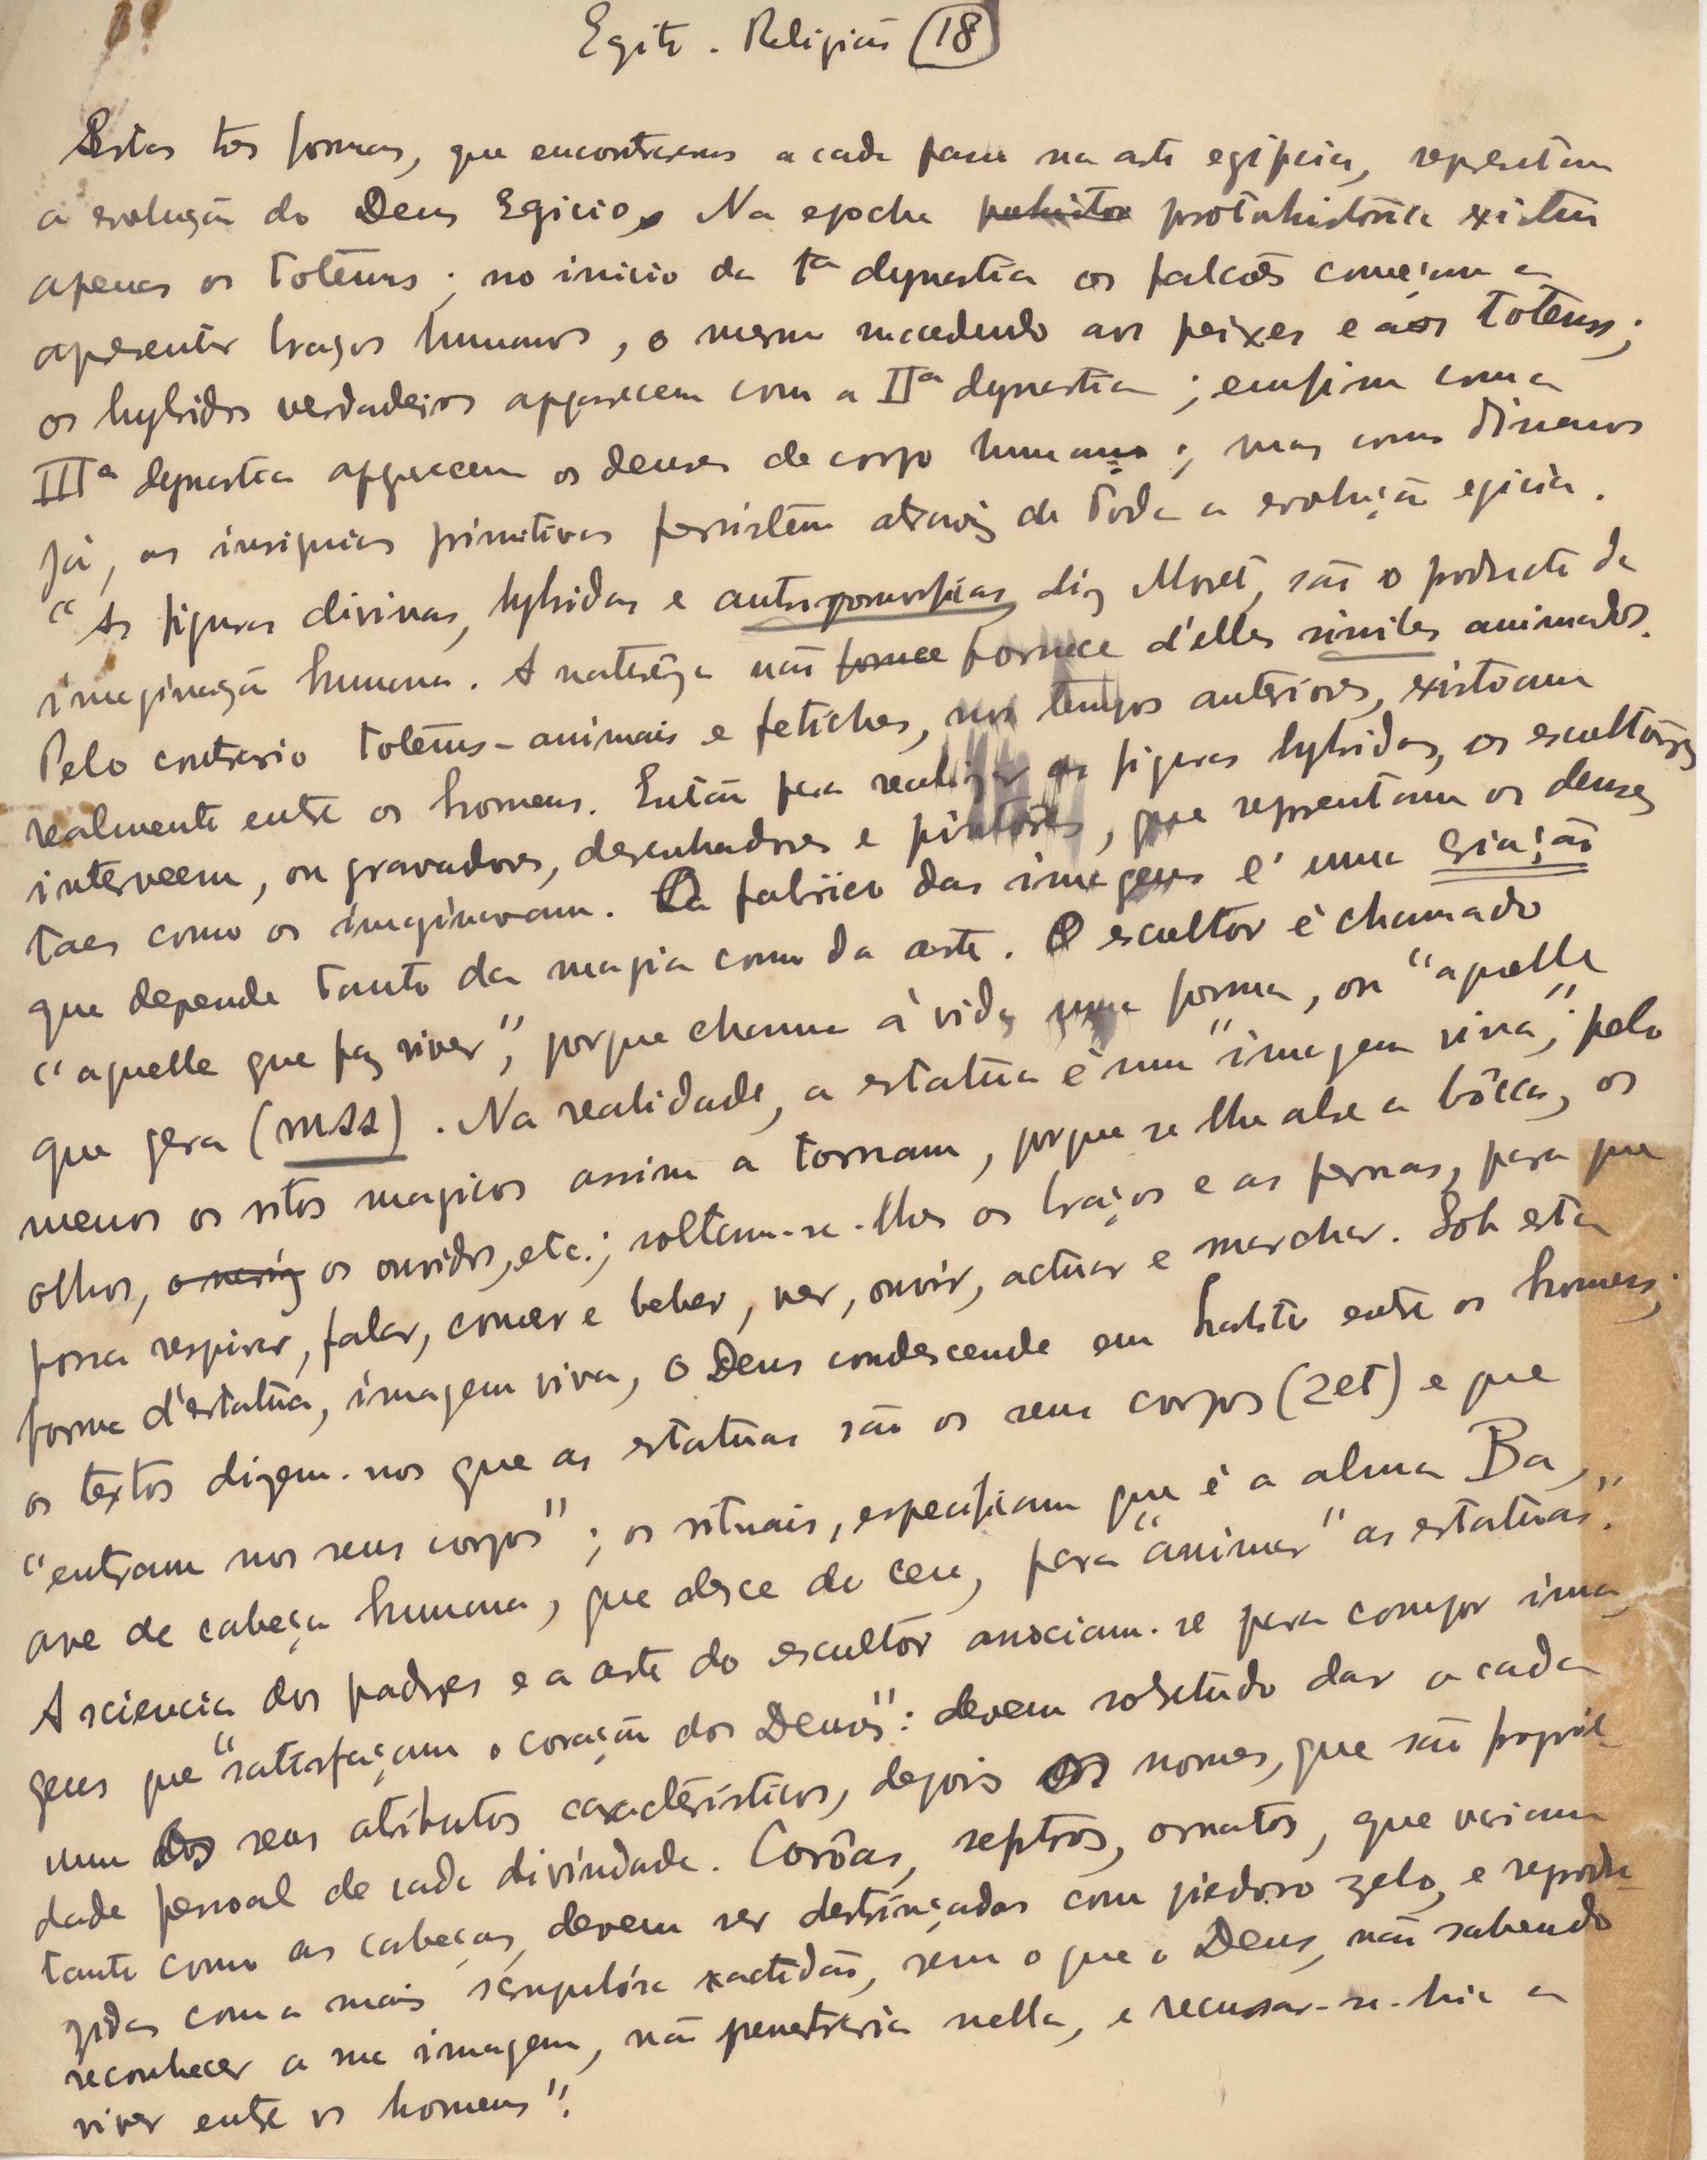 Egito. Religião (18)
Estas tres formas, que encontramos a cada passo na arte egipcia, representam
a evolução do Deus Egicio. Na epocha prehisto protohistórica existem
apenas os totems; no inicio da 1ª dynastia os falcões começam a
apresentar braços humanos, o mesmo succedendo aos peixes e aos totems;
os hybridos verdadeiros apparecem com a IIª dynastia; emfim com a
IIIª dynastia apparecem os deuses de corpo humano; mas como dissemos
já, as insignias primitivas persistem através de toda a evolução egicia.
"As figuras divinas, hybridas e antropomorficas, diz Moret, são o producto da
imaginação humana. A naturêza não fornece fornece d'elles similes animados.
Pelo contrario totems-animais e fetiches, nos tempos anteriores, existiam
realmente entre os homens. Então para realizar as figuras hybridas, os escultôres
interveem, ou gravadores, desenhadores e pintôres, que representam os deuses
taes como os imaginavam. O fabrico das imagens é uma criação
que depende tanto da magia como da arte. O escultor é chamado
"aquelle que faz viver", porque chama á vida uma forma, ou "aquelle
que gera (mss). Na realidade, a estatua é uma "imagem viva"; pelo
menos os ritos magicos assim a tornam, porque se lhe abre a bôcca, os
olhos, o nariz os ouvidos, etc.; soltam-se-lhes os braços e as pernas, para que
possa respirar, falar, comer e beber, ver, ouvir, actuar e marchar. Sob esta
forma d'estatua, imagem viva, o Deus condescende em habitar entre os homens;
os textos dizem-nos que as estatuas são os seus corpos (zet) e que
"entram nos seus corpos"; os rituais, especificam que é a alma Ba,
ave de cabeça humana, que desce do ceu, para "animar" as estatuas".
A sciencia dos padres e a arte do escultor associam-se para compor ima-
gens que "satisfaçam o coração dos Deuses": devem sobretudo dar a cada
um os seus atributos caractéristicos, depois os nomes, que são proprie-
dade pessoal de cada divindade. Corôas, septros, ornatos, que variam
tanto como as cabeças, devem ser destrinçados com piedoso zelo, e reprodu-
zidas com a mais scrupulósa exactidão, sem o que o Deus, não sabendo
reconhecer a sua imagem, não penetraria nella, e recusar-se-hia a
viver entre os homens".